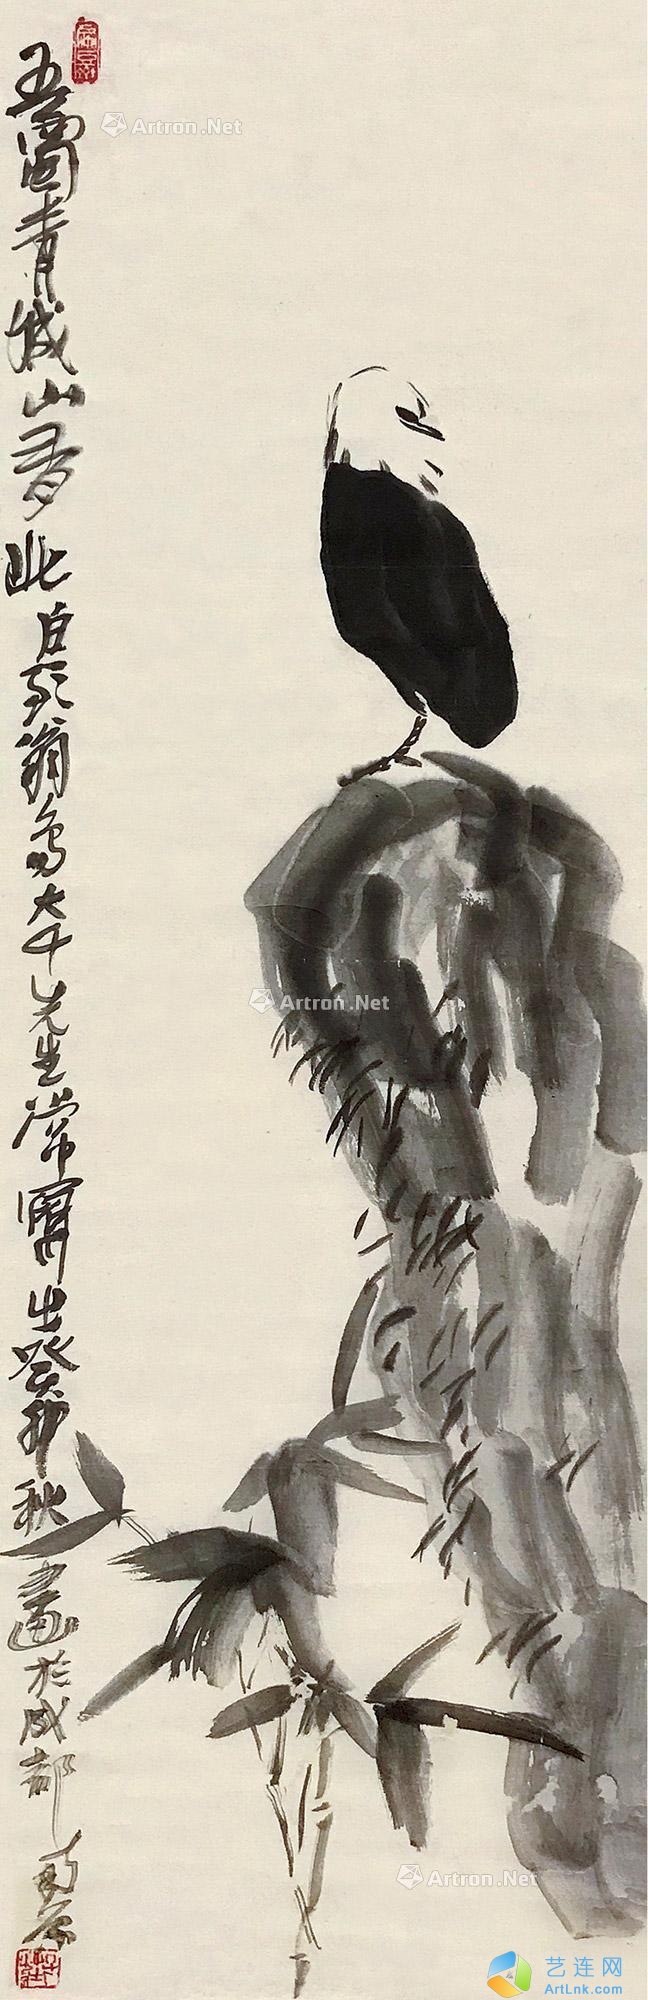 吾蜀青城山多此白头翁鸟大千先生常写之癸卯秋画於成都南原
Artron.Net
Artron.Net
Artron.Net
艺连网
ArtLnk.com